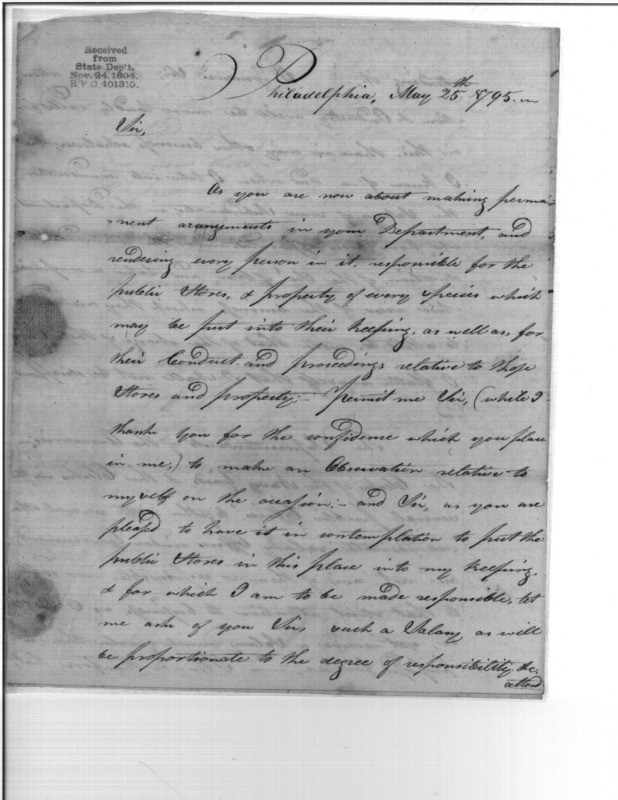 Received
from
State Dep't.
Nov. 24, 1894.
R.P.O 401310.
Philadelphia, May 25th 1795.
Sir,
As you are now about making perma-
-nent arangements in your Department, and
rendering every person in it, responsible for the
public Stores, & property of every species which
may be put into their keeping, as well as, for
their Conduct and proceedings relative to those
Stores and property;- Permit me Sir, (while I
thank you for the confidence which you place
in me,) to make an Observation relative to
myself on the occasion;- and Sir, as you are
pleas'd to have it in contemplation to put the
public Stores in this place into my keeping,
& for which I am to be made responsible, let
me ask of you Sir, such a Salary as will
be proportionate to the degree of responsibility, &c.
atten